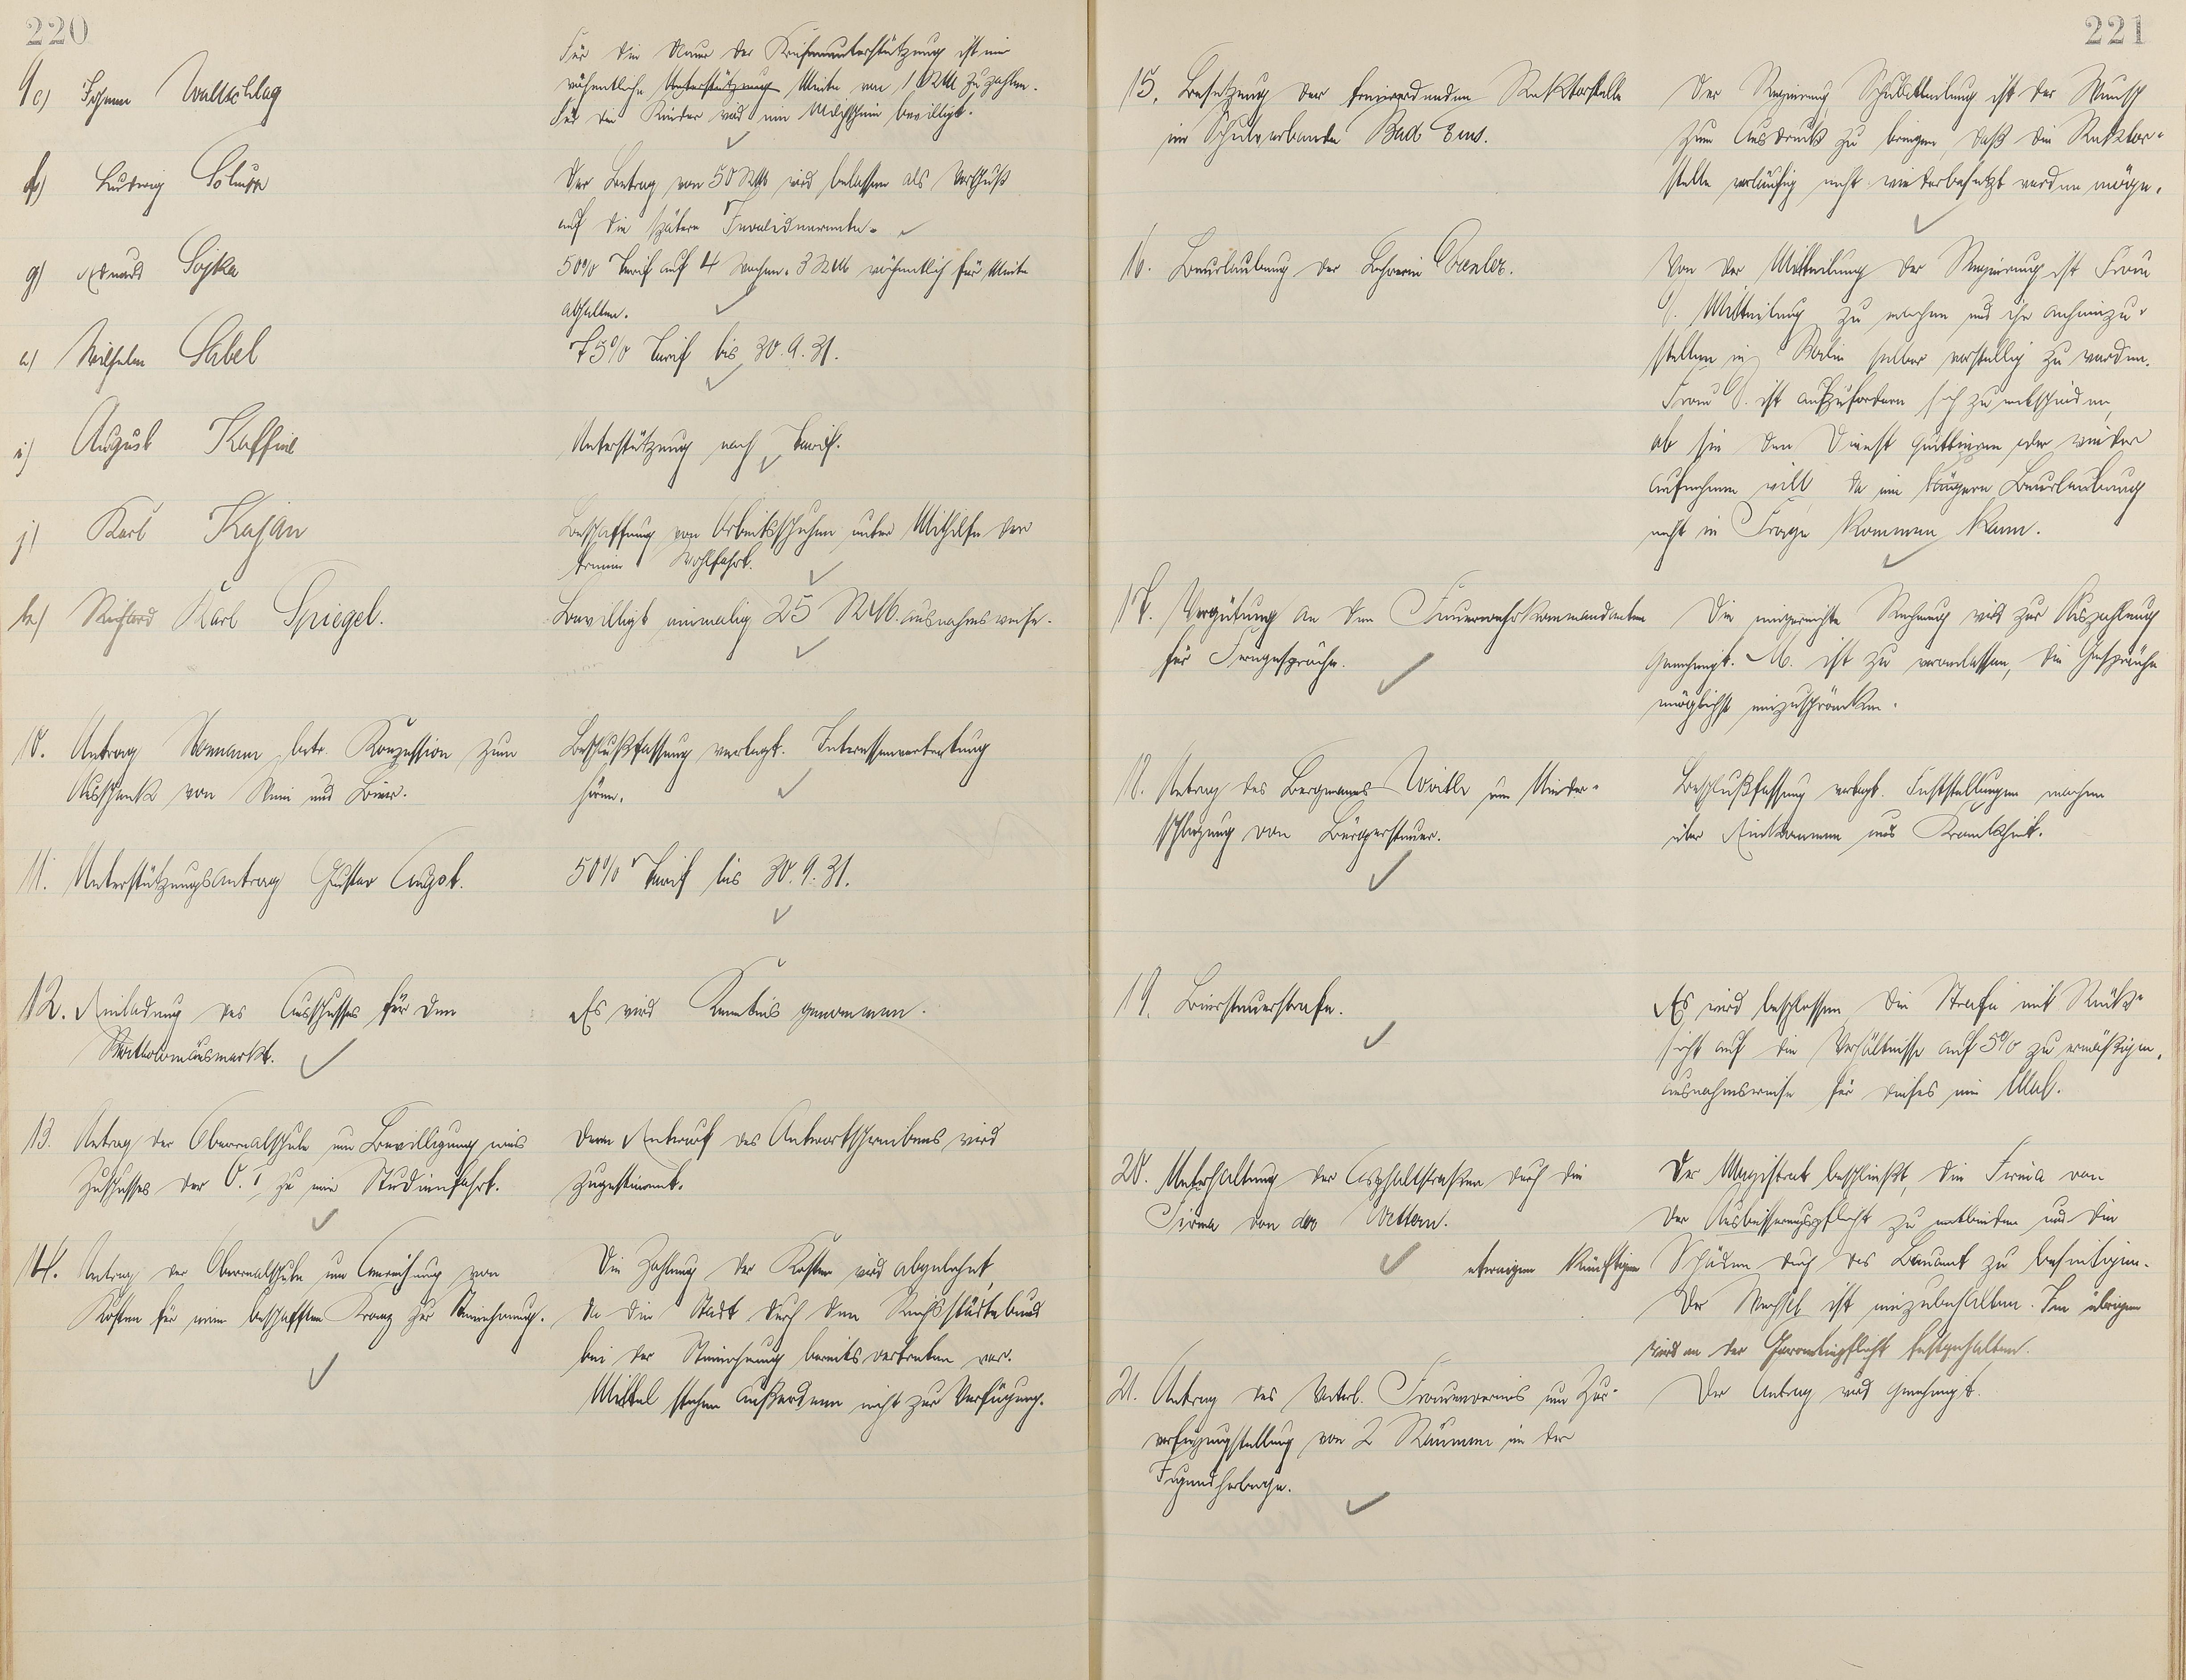 220
9 e) Johann Wallschlag
Für die Dauer der Krisenunterstützung ist eine
wöchentliche Unterstützung Miete von 1 RM zu zahlen.
Für die Kinder wird ein Milchschein bewilligt.
f) Ludwig
Der Betrag von 50 RM wird belassen als Vorschuß
auf die spätere Invalidenrente.
g) Eduard Sojka
50% Tarif auf 4 Wochen. 3 RM wöchentlich für Miete
abhalten.
h) Wilhelm Sabel
75% Tarif bis 30.9.31.
i) August Kaffine
Unterstützung nach Tarif.
j) Karl Kajan
Beschaffung von Arbeitsschuhen unter Mithilfe der
freien Wohlfahrt.
k) Richard Karl Spiegel.
Bewilligt einmalig 25 RM. ausnahmsweise.
10. Antrag betr. Konzession zum
Ausschank von Wein und Bier.
Beschlußfassung vertagt. Interessenvertretung
hören.
11. Unterstützungsantrag Gustav Angst.
50% Tarif bis 30.9.31.
12. Einladung des Ausschusses für den
Bartholomäusmarkt.
Es wird Kenntnis genommen.
13. Antrag der Oberrealschule um Bewilligung eines
Zuschusses der O.I zu einer Studienfahrt.
Dem Entwurf des Antwortschreibens wird
zugestimmt.
14. Antrag der Oberrealschule um Anweisung von
Kosten für einen beschafften Kranz zur Steinehrung.
Die Zahlung der Kosten wird abgelehnt,
da die Stadt durch den Reichsstädtebund
bei der Steinehrung bereits vertreten war.
Mittel stehen außerdem nicht zur Verfügung.
221
15. Besetzung der freiwerdenden Rektorstelle
im Schulverbande Bad Ems.
Der Regierung Schulabteilung ist der Wunsch
zum Ausdruck zu bringen, daß die Rektor-
stelle vorläufig nicht wiederbesetzt werden möge.
16. Beurlaubung der Lehrerin
Von der Mitteilung der Regierung ist Frau
G. Mitteilung zu machen und ihr anheimzu-
stellen in Berlin selber vorstellig zu werden.
Frau G. ist aufzufordern sich zu entscheiden,
ob sie den Dienst quittieren oder wieder
aufnehmen will, da eine längere Beurlaubung
nicht in Frage kommen kann.
17. Vergütung an den Feuerwehrkommandanten
für Ferngespräche.
Die eingereichte Rechnung wird zur Auszahlung
genehmigt. M. ist zu veranlassen, die Gespräche
möglichst einzuschränken.
18. Antrag des Bergmanns Woitle um Nieder-
schlagung von Bürgersteuer.
Beschlußfassung vertagt. Feststellungen machen
über Einkommen aus Krankheit.
19. Biersteuerstrafe.
Es wird beschlossen die Strafe mit Rück-
sicht auf die Verhältnisse auf 5% zu ermäßigen,
ausnahmsweise für dieses eine Mal.
20. Unterhaltung der Asphaltstraßen durch die
Firma von der Wettern.
Der Magistrat beschließt, die Firma von
der Ausbesserungspflicht zu entbinden und die
etwaigen künftigen Schäden durch das Bauamt zu beseitigen.
Der Wechsel ist einzubehalten. Im übrigen
wird an der Garantiepflicht festgehalten.
21. Antrag des Vaterl. Frauenvereins um Zur-
verfügungstellung von 2 Räumen in der
Jugendherberge.
Der Antrag wird genehmigt.